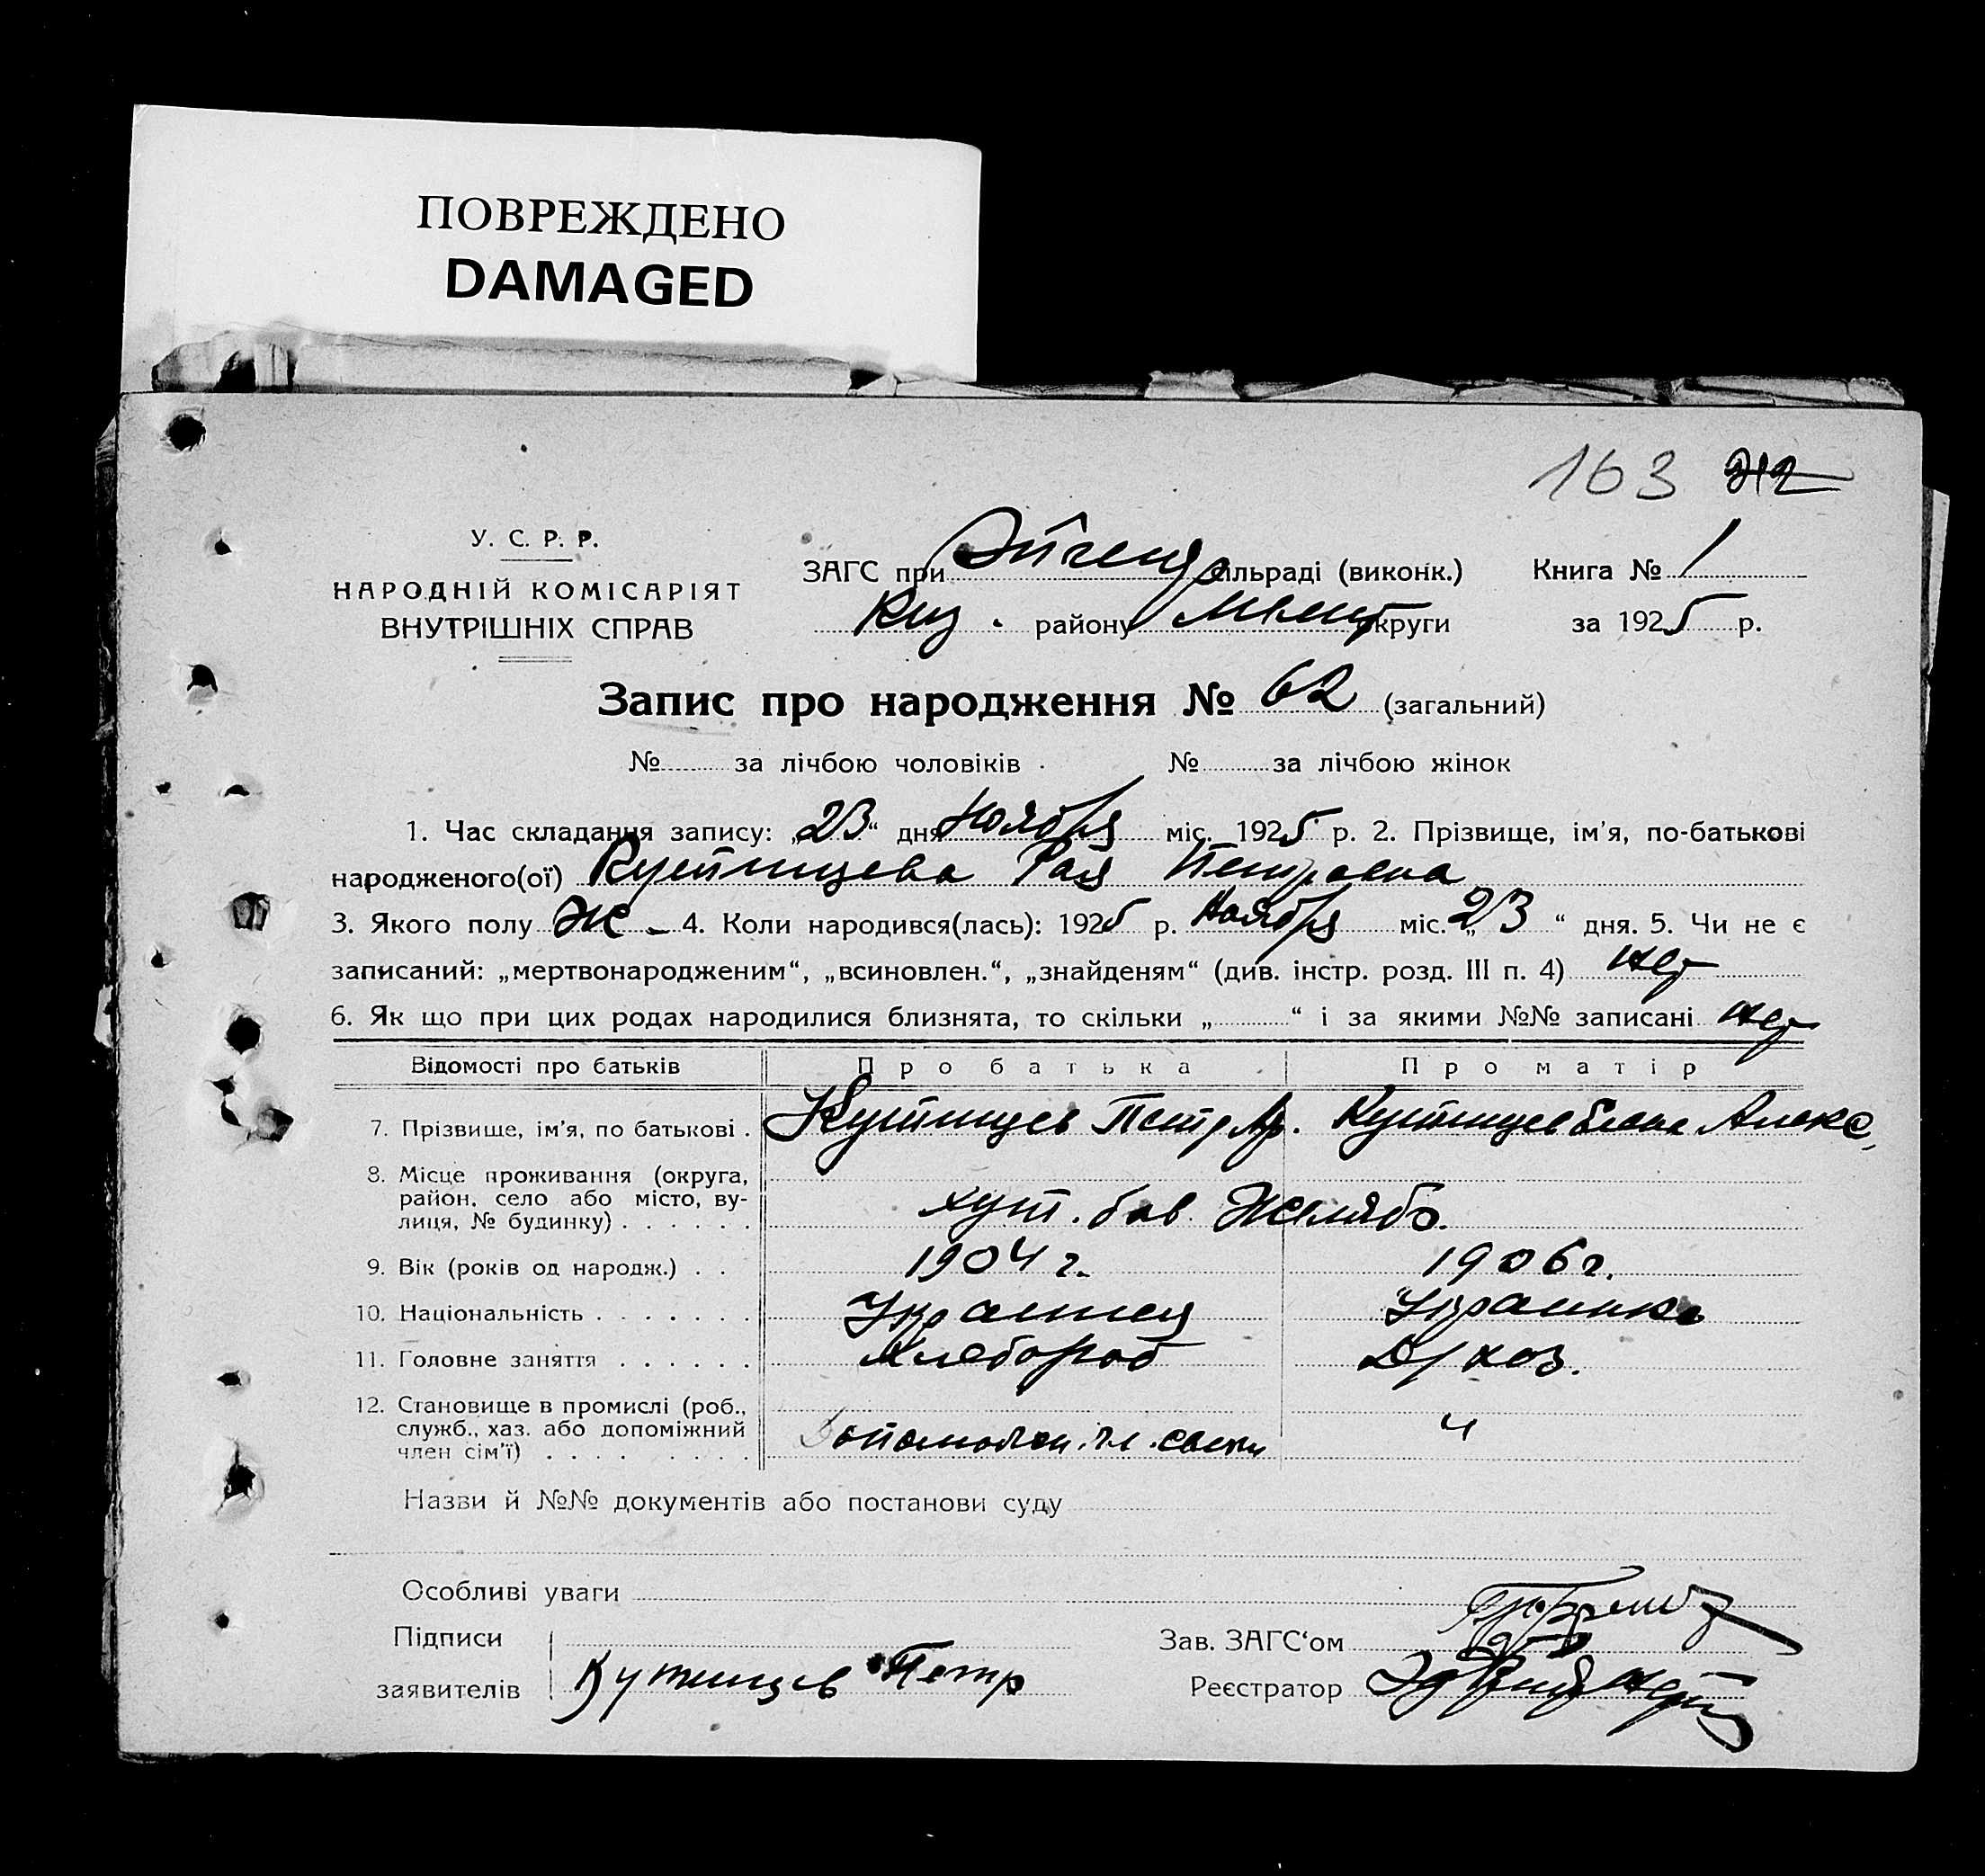 ПОВРЕЖДЕНО
DAMAGED
163 212
У. С. Р. Р.
НАРОДНІЙ КОМІСАРІЯТ
ВНУТРІШНІХ СПРАВ
ЗАГС при сільраді (виконк.) Книга № 1
району округи за 1925 р.
Запис про народження № 62 (загальний)
№ за лічбою чоловіків № за лічбою жінок
1. Час складання запису: „23“ дня Ноября міс. 1925 р. 2. Прізвище, ім'я, по-батькові
народженого(ої) Рая Петровна
3. Якого полу Ж - 4. Коли народився(лась): 1925 р. Ноября міс. „23“ дня. 5. Чи не є
записаний: „мертвонародженим“, „всиновлен.“, „знайденям“ (див. інстр. розд. III п. 4) нет
6. Як що при цих родах народилися близнята, то скільки „ “ і за якими №№ записані нет
Відомості про батьків Про батька Про матір
7. Прізвище, ім'я, по батькові . Петр Алекс
8. Місце проживання (округа,
район, село або місто, ву-
лиця, № будинку) . . . . . . хут.
9. Вік (років од народж.) . . 1904 г. 1906 г.
10. Національність . . . . . . . Украинец Украинка
11. Головне заняття . . . . . . Хлебороб Д/хоз.
12. Становище в промислі (роб.,
служб., хаз. або допоміжний
член сім'ї) . . . . . . . . . "
Назви й №№ документів або постанови суду
Особливі уваги
Підписи
заявителів Петр
Зав. ЗАГС'ом
Реєстратор